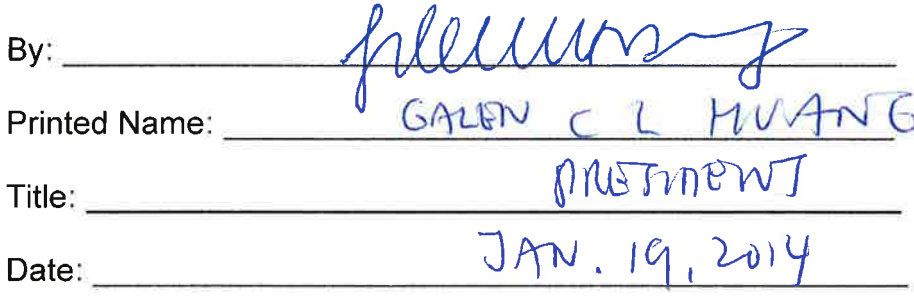 By:
Printed Name: GALEN C L HUANG
Title: PRESIDENT
Date: JAN. 19, 2014